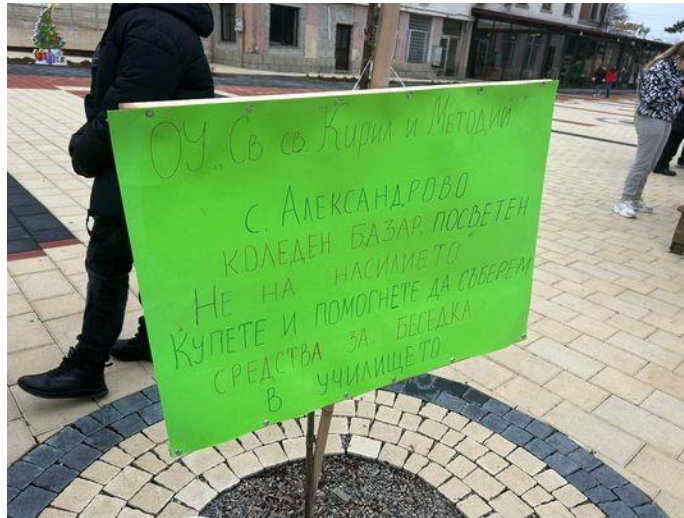 ОУ „Св св. Кирил и Методий"
с. АЛЕКСАНДРОВО
КОЛЕДЕН БАЗАР, ПОСВЕТЕН
НЕ НА НАСИЛИЕТО"
КУПЕТЕ И ПОМОГНЕТЕ ДА СЪБЕРЕМ
СРЕДСТВА ЗА БЕСЕДКА
В УЧИЛИЩЕТО